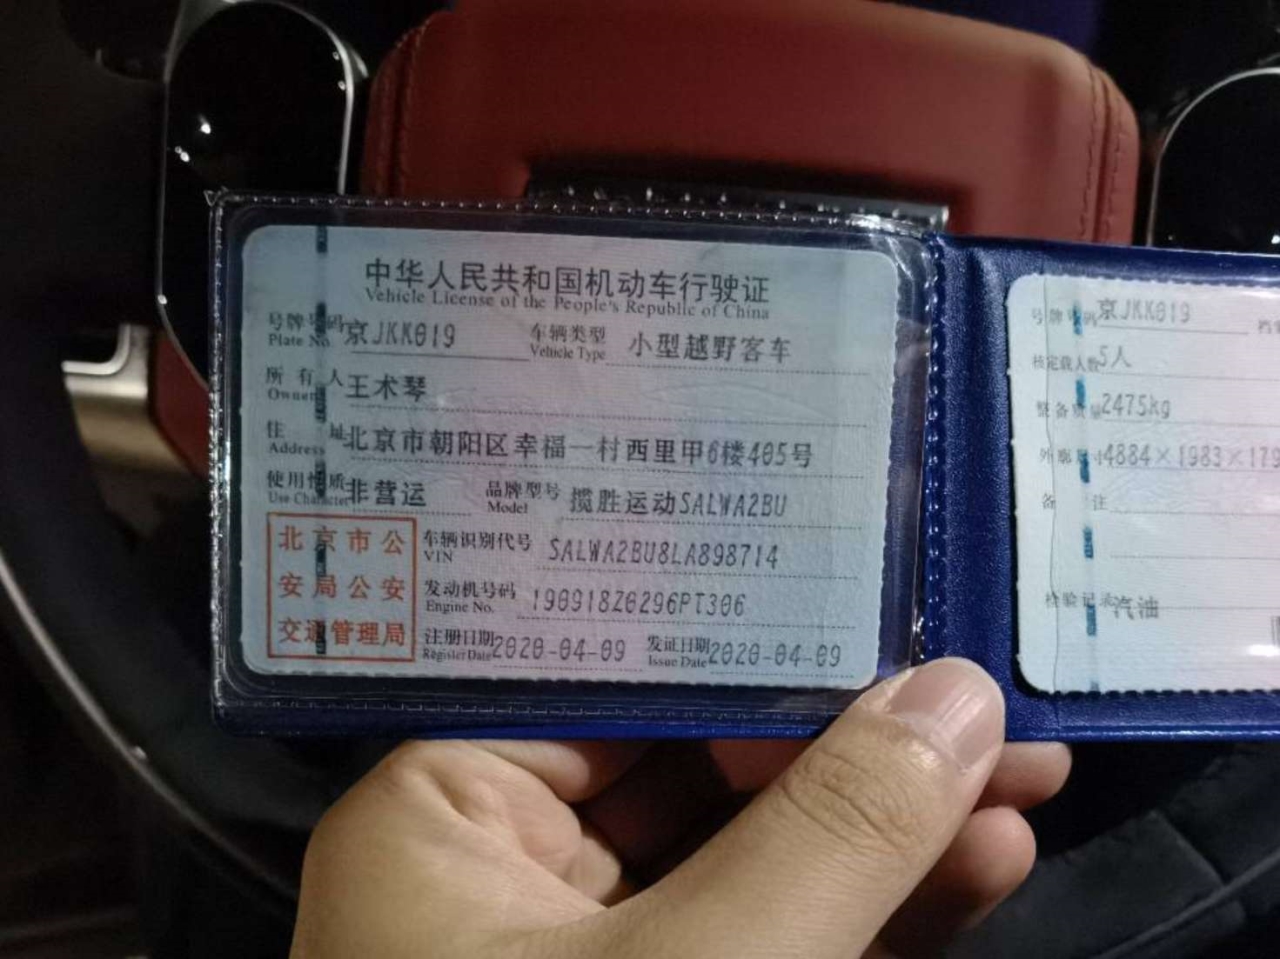 中华人民共和国机动车行驶证
Vehicle License of the People's Republic of China
号牌号码 京JKK019 车辆类型 小型越野客车
Plate No. Vehicle Type
所有人 王术琴
Owner
住址 北京市朝阳区幸福一村西里甲6楼405号
Address
使用性质 非营运 品牌型号 揽胜运动SALWA2BU
Use Character Model
北京市公
安局公安
交通管理局
车辆识别代号 SALWA2BU8LA898714
VIN
发动机号码 190918Z6296PT306
Engine No.
注册日期 2020-04-09 发证日期 2020-04-09
Register Date Issue Date
号牌号码 京JKK019
核定载人数 5人
整备质量 2475kg
外廓尺寸 4884×1983×179
备注
检验记录 汽油